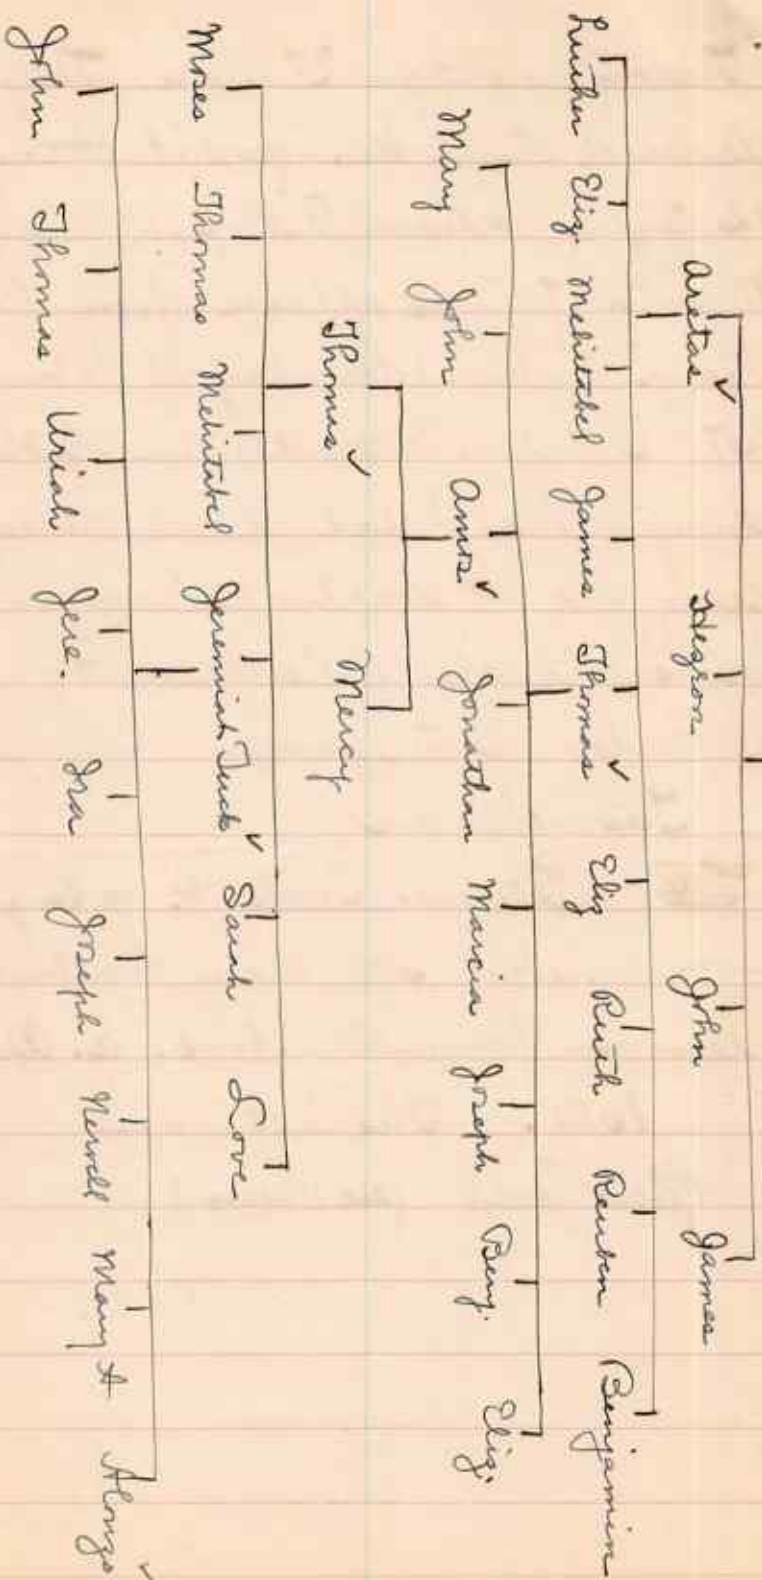 Aretas ✓ Hezron John James
Luther Eliz. Mehitabel James Thomas ✓ Eliz Ruth Reuben Benjamin
Mary John Amos ✓ Jonathan Marcia Joseph Benj. Eliz.
Thomas ✓ Mercy
Moses Thomas Mehitabel Jeremiah Tuck ✓ Sarah Love
John Thomas Uriah Jere. Ira Joseph Newell Mary A Alonzo ✓